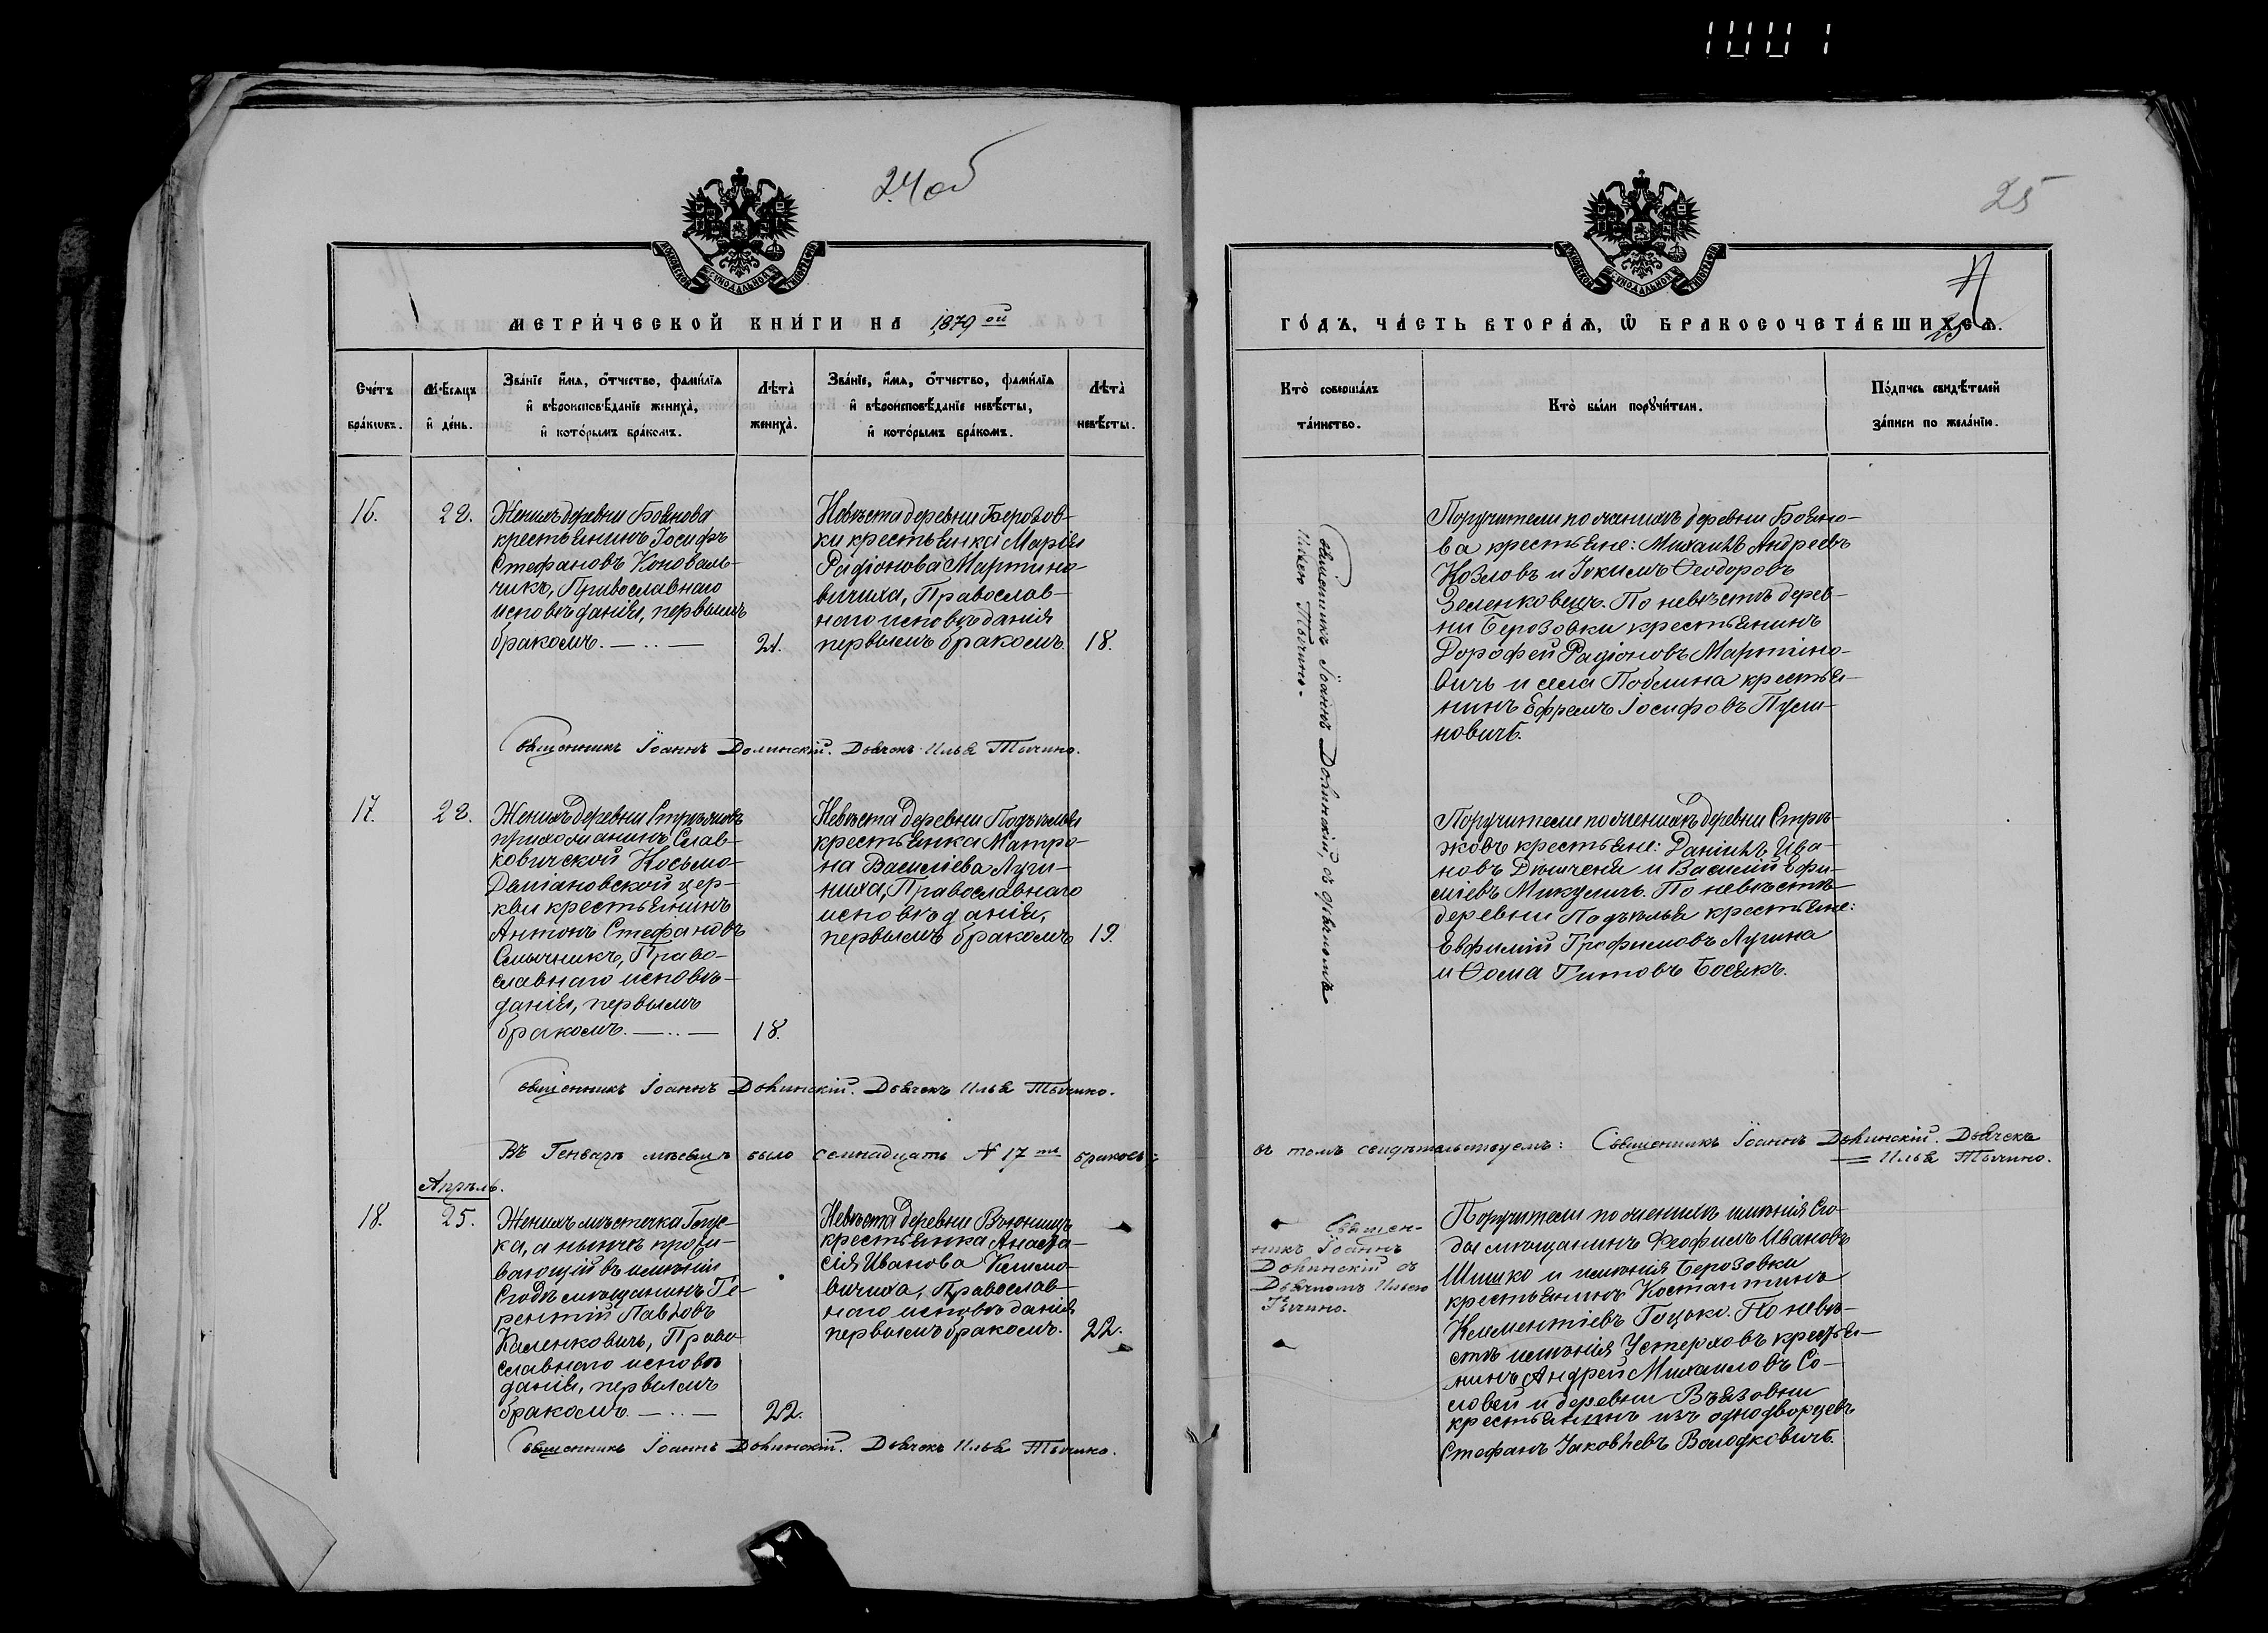 24 об
25
МОСКОВСКОЙ СѴНОДАЛЬНОЙ ТѴПОГРАФІИ
МОСКОВСКОЙ СѴНОДАЛЬНОЙ ТѴПОГРАФІИ
МЕТРИ́ЧЕСКОЙ КНИ́ГИ НА 1879 ой
ГО́ДЪ, ЧА́СТЬ ВТОРА́Ѧ, Ѿ БРАКОСОЧЕТА́ВШИХСѦ.
25
Сче́тъ бра́кѡвъ.
Мѣ́сѧцъ и҆ де́нь.
Зва́нїе и҆́мѧ, ѻ҆́тчество, фами́лїѧ и҆ вѣроисповѣ́данїе жениха̀, и҆ кото́рымъ бра́комъ.
Лѣта̀ жениха̀.
Зва́нїе, и҆́мѧ, ѻ҆́тчество, фами́лїѧ и҆ вѣроисповѣ́данїе невѣ́сты, и҆ кото́рымъ бра́комъ.
Лѣта̀ невѣ́сты.
Кто̀ соверша́лъ та́инство.
Кто̀ бы́ли порꙋчи́тели.
По́дпись свидѣ́телей за́писи по жела́нїю.
16.
22.
Женихъ деревни Боянова
крестьянинъ Іосифъ
Стефановъ Коноваль-
чикъ, Православнаго
исповѣданія, первымъ
бракомъ.
21.
Невѣста деревни Березов-
ки крестьянка Марія
Радіонова Мартино-
вичиха, Православ-
наго исповѣданія
первымъ бракомъ.
18.
Священникъ Іоаннъ Долинскій, съ дьячкомъ
Ильею Тычино.
Поручители по женихѣ деревни Бояно-
ва крестьяне: Михаилъ Андреевъ
Козловъ и Іокимъ Ѳеодоровъ
Зеленковецъ. По невѣстѣ дерев-
ни Березовки крестьянинъ
Дорофей Радіоновъ Мартино-
вичъ и села Поблина крестья-
нинъ Ефремъ Іосифовъ Пуси-
новичъ.
Священникъ Іоаннъ Долинскій. Дьячекъ Илья Тычино.
17.
22.
Женихъ деревни Стрѣжовъ
прихожанинъ Слав-
ковичской Косьмо-
Даміановской цер-
кви крестьянинъ
Антонъ Стефановъ
Смычникъ, Право-
славнаго исповѣ-
данія, первымъ
бракомъ.
18.
Невѣста деревни Подъѣлья
крестьянка Матро-
на Василіева Лучи-
ниха, Православнаго
исповѣданія,
первымъ бракомъ
19.
Поручители по женихѣ деревни Стрѣ-
жовъ крестьяне: Даніилъ Ива-
новъ Дюмченя и Василій Ефи-
міевъ Микуличъ. По невѣстѣ
деревни Подъѣлья крестьяне:
Евфимій Трофимовъ Лучина
и Ѳома Титовъ Босякъ.
Священникъ Іоаннъ Долинскій. Дьячекъ Илья Тычино.
Въ Генварѣ мѣсяцѣ было семнадцать № 17 ть браковъ:
въ томъ свидѣтельствуемъ: Священникъ Іоаннъ Долинскій. Дьячекъ
Илья Тычино.
Апрѣль.
18.
25.
Женихъ мѣстечка Глус-
ка, а нынѣ прожи-
вающій въ имѣніи
Сгодѣ мѣщанинъ Те-
рентій Павловъ
Каленковичъ, Право-
славнаго исповѣ
данія, первымъ
бракомъ.
22.
Невѣста деревни Вьюнищъ
крестьянка Анаста-
сія Иванова Климо-
вичиха, Православ-
наго исповѣданія
первымъ бракомъ.
22.
Священ-
никъ Іоаннъ
Долинскій съ
Дьячкомъ Ильею
Тычино.
Поручители по женихѣ имѣнія Сго-
ды мѣщанинъ Феофилъ Ивановъ
Шишко и имѣнія Березовки
крестьянинъ Костантинъ
Климентіевъ Гоцко. По невѣ-
стѣ имѣнія Устерховъ крестья-
нинъ Андрей Михаиловъ Со-
ловей и деревни Вьязовни
крестьянинъ изъ однодворцевъ
Стефанъ Іаковлевъ Володковичъ.
Священникъ Іоаннъ Долинскій. Дьячекъ Илья Тычино.